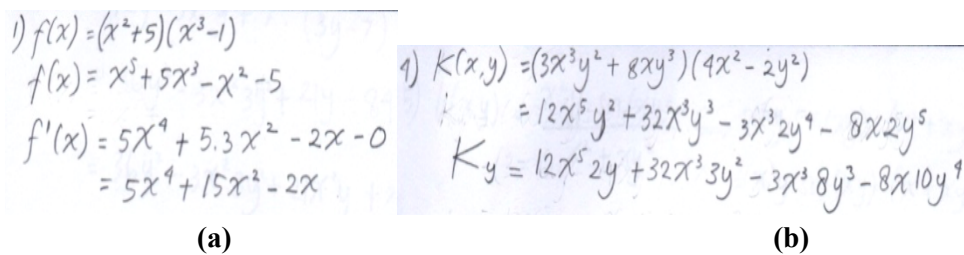 1) f(x) = (x²+5)(x³-1)
f(x) = x⁵+5x³-x²-5
f'(x) = 5x⁴+5.3x²-2x-0
= 5x⁴+15x²-2x
(a)
4) K(x,y) = (3x³y²+8xy³)(4x²-2y²)
= 12x⁵y²+32x³y³-3x³2y⁴-8x2y⁵
Ky = 12x⁵2y+32x³3y²-3x³8y³-8x10y⁴
(b)